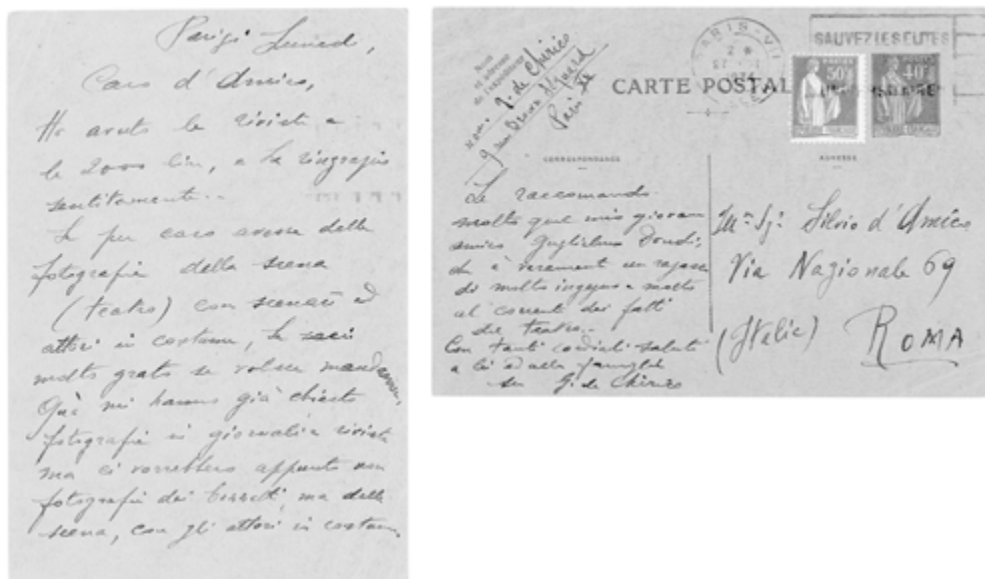 Parigi Lunedì,
Caro d'Amico,
Ho avuto la rivista e
le 2000 lire, e La ringrazio
sentitamente..
Se per caso avesse delle
fotografie della scena
(teatro) con scenari ed
attori in costume, Le sarei
molto grato se volesse mandarmene.
Quà mi hanno già chiesto
fotografie in giornali e riviste
ma ci vorrebbero appunto non
fotografie dei bozzetti, ma della
scena, con gli attori in costume.
Nom
et adresse
de l'expéditeur
G. de Chirico
9 rue
Paris
PARIS-VII
SAUVEZ LES
CARTE POSTALE
50c
40c
CORRESPONDANCE
ADRESSE
Le raccomando
molto quel mio giovane
amico Guglielmo Dondi,
che è veramente un ragazzo
di molto ingegno e molto
al corrente dei fatti
del teatro..
Con tanti cordiali saluti
a lei ed alla famiglia
suo G. de Chirico
Silvio d'Amico
Via Nazionale 69
(Italie) ROMA